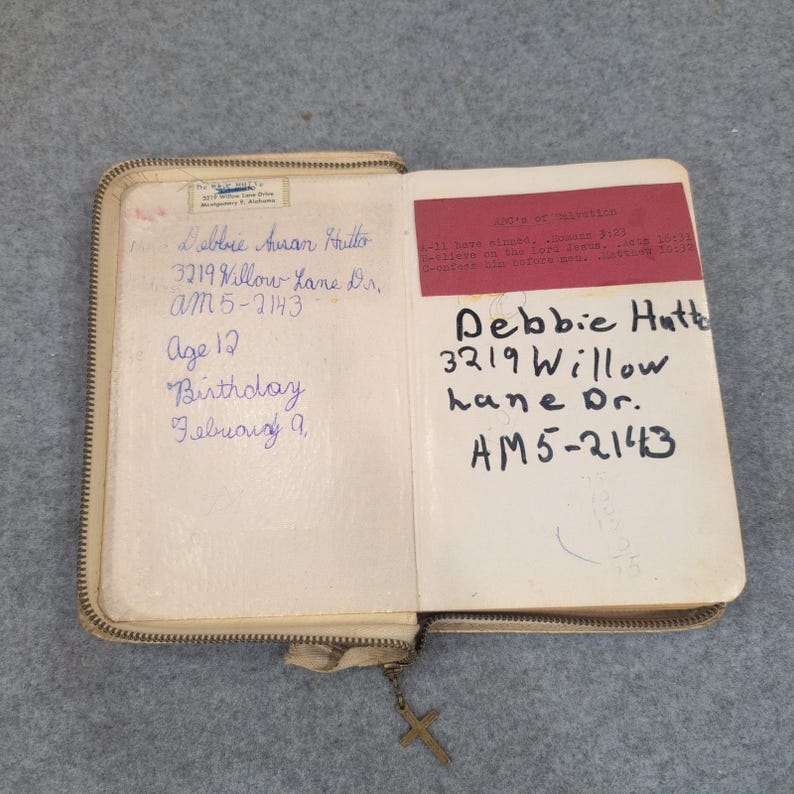 3219 Willow Lane Drive
Montgomery 9, Alabama
Debbie Susan Hutto
3219 Willow Lane Dr.
AM5-2143
Age 12
Birthday
February 9.
ABC's of Salvation
A-ll have sinned. .Romans 3:23
B-elieve on the Lord Jesus. .Acts 16:31
C-onfess him before men. .Matthew 10:32
Debbie Hutto
3219 Willow
Lane Dr.
AM5-2143